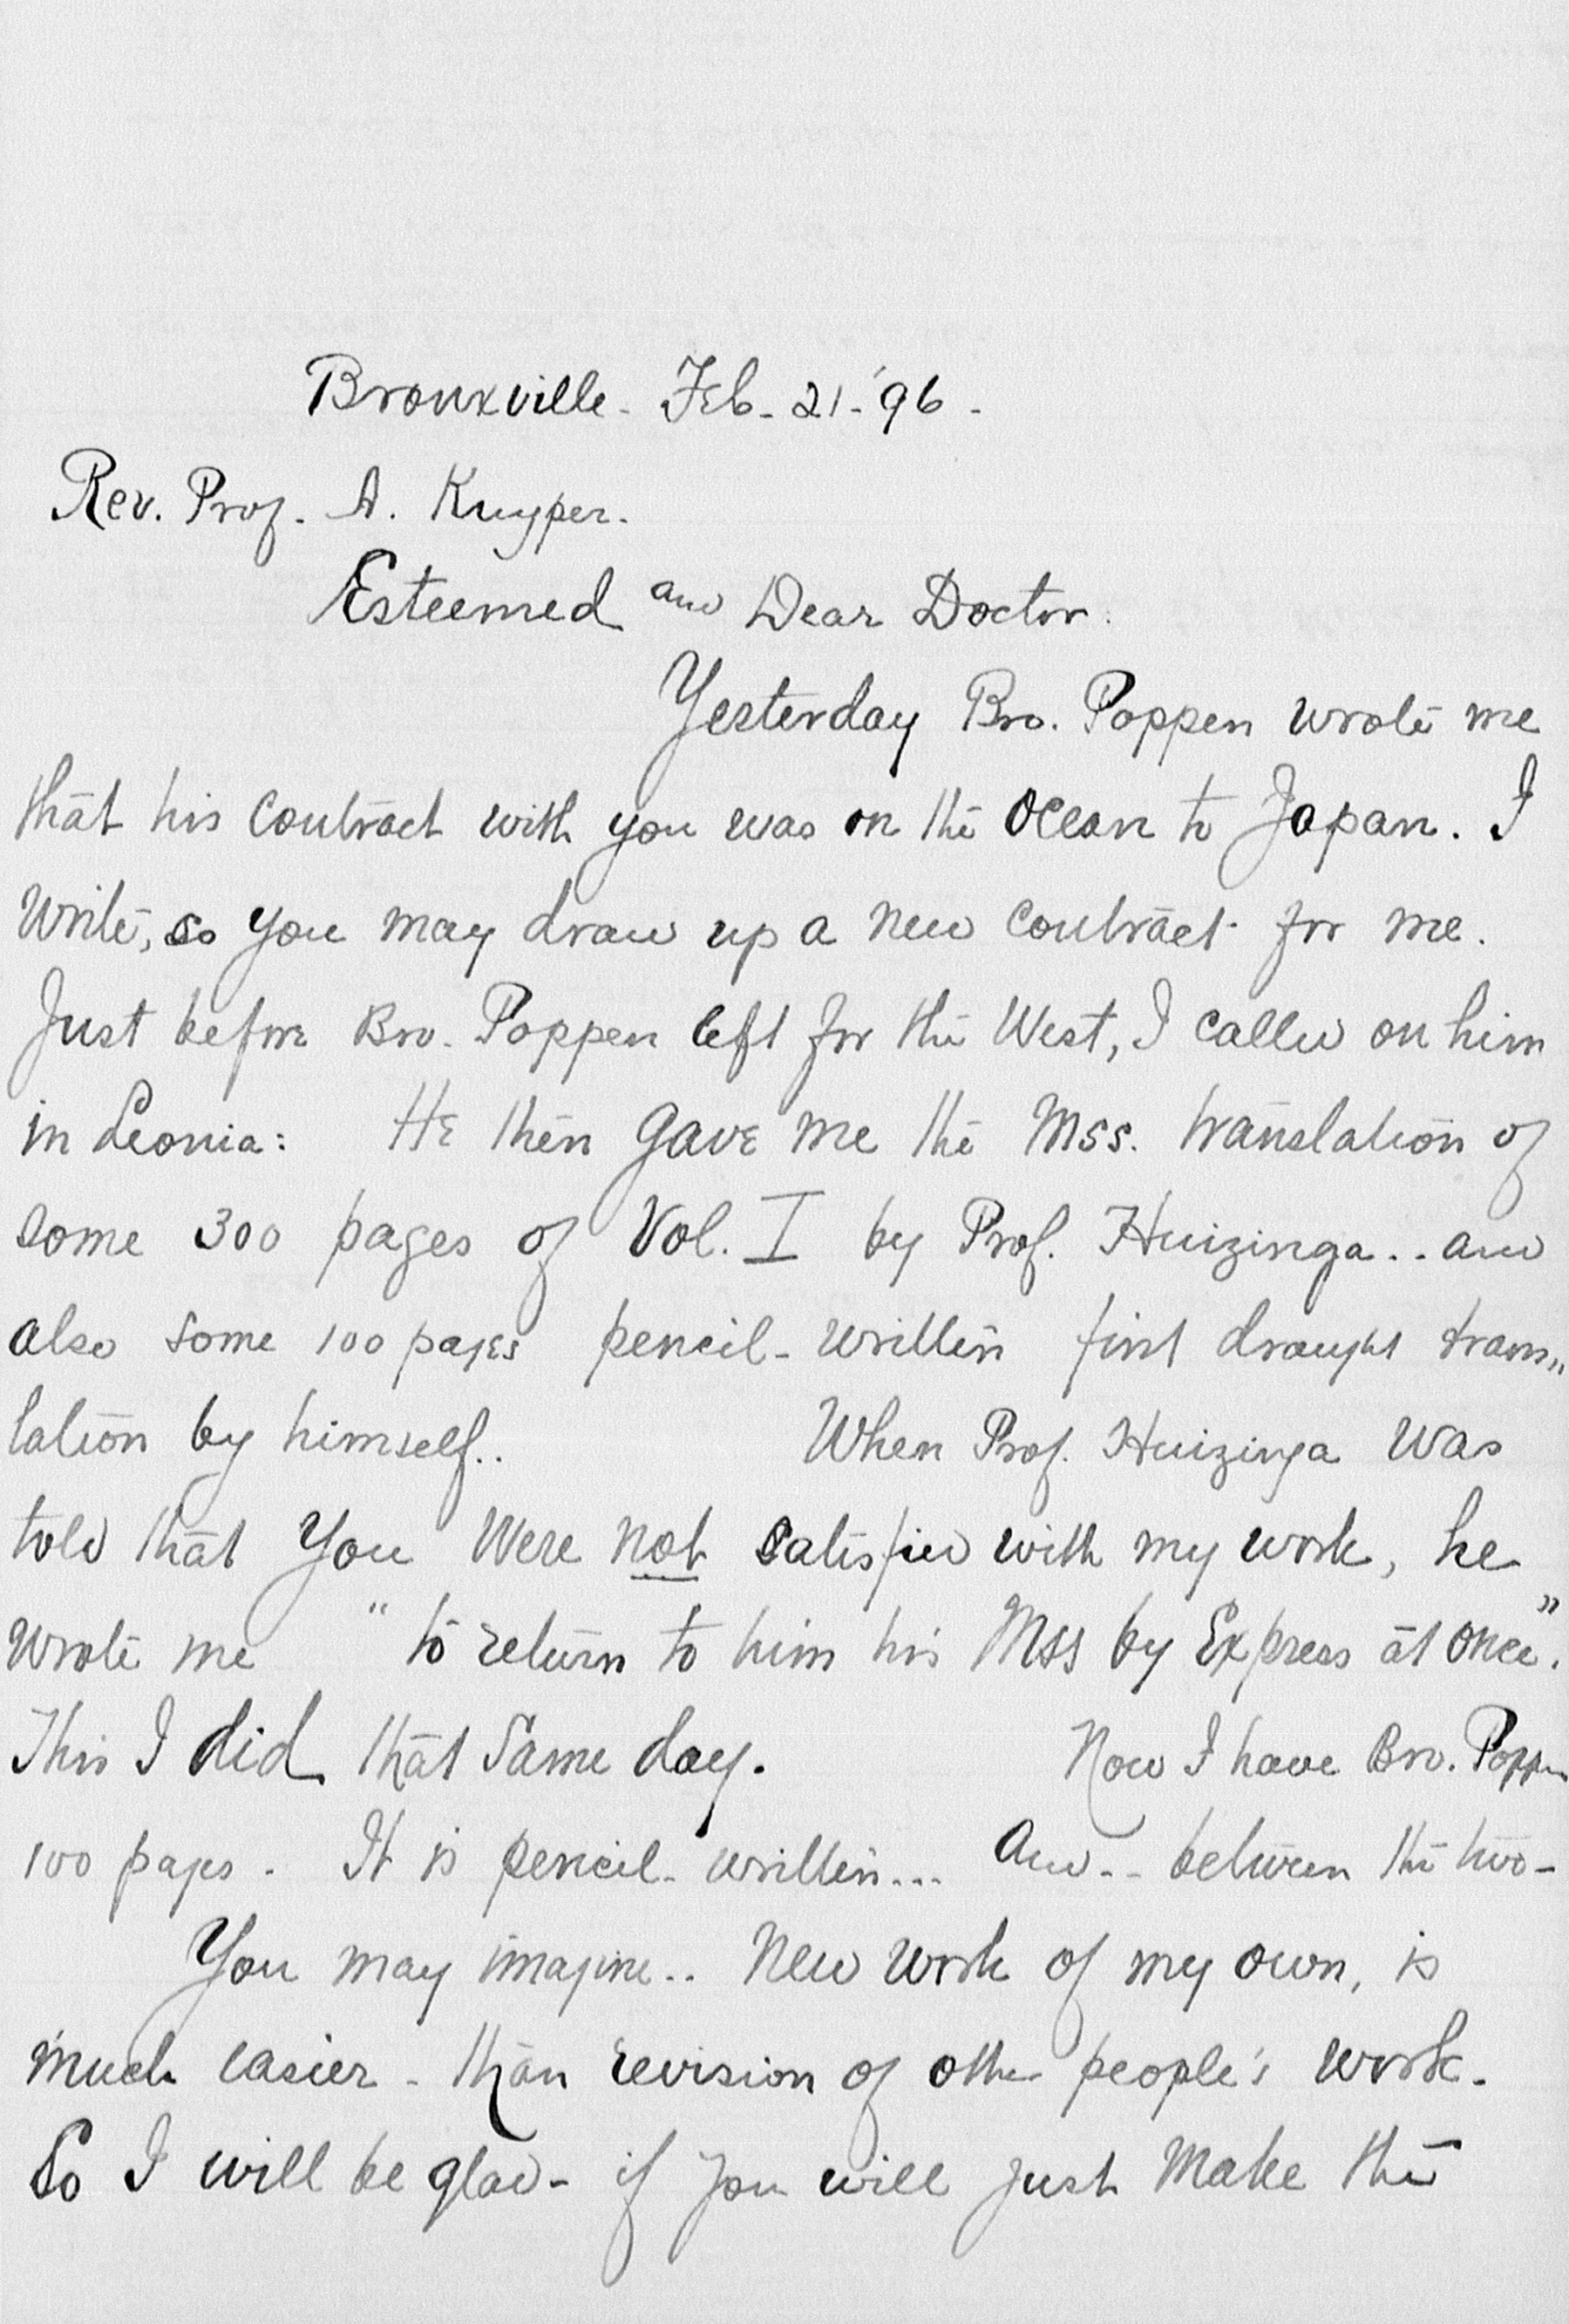 Bronxville - Feb - 21 - '96 -
Rev. Prof. A. Kuyper.
Esteemed and Dear Doctor.
Yesterday Bro. Poppen wrote me
that his contract with you was on the Ocean to Japan. I
write, so you may draw up a new contract for me.
Just before Bro. Poppen left for the West, I called on him
in Leonia: He then gave me the Mss. translation of
some 300 pages of Vol. I by Prof. Huizinga.. and
also some 100 pages pencil-written first draught trans„
lation by himself..   When Prof. Huizinga was
told that you were not satisfied with my work, he
wrote me "to return to him his Mss by Express at once".
This I did that same day.   Now I have Bro. Poppen
100 pages. It is pencil-written... And.. between the two -
You may imagine.. New work of my own, is
much easier - than revision of other people's work.
So I will be glad - if you will just make the